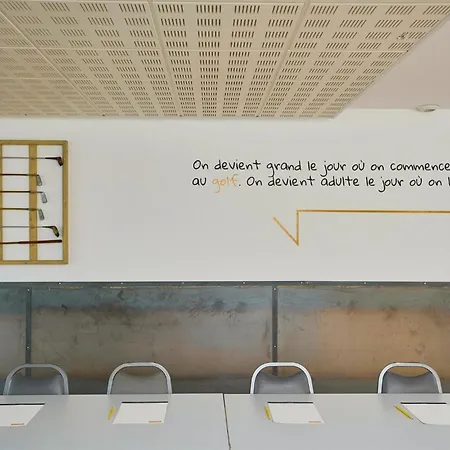 On devient grand le jour où on commence
au golf. On devient adulte le jour où on